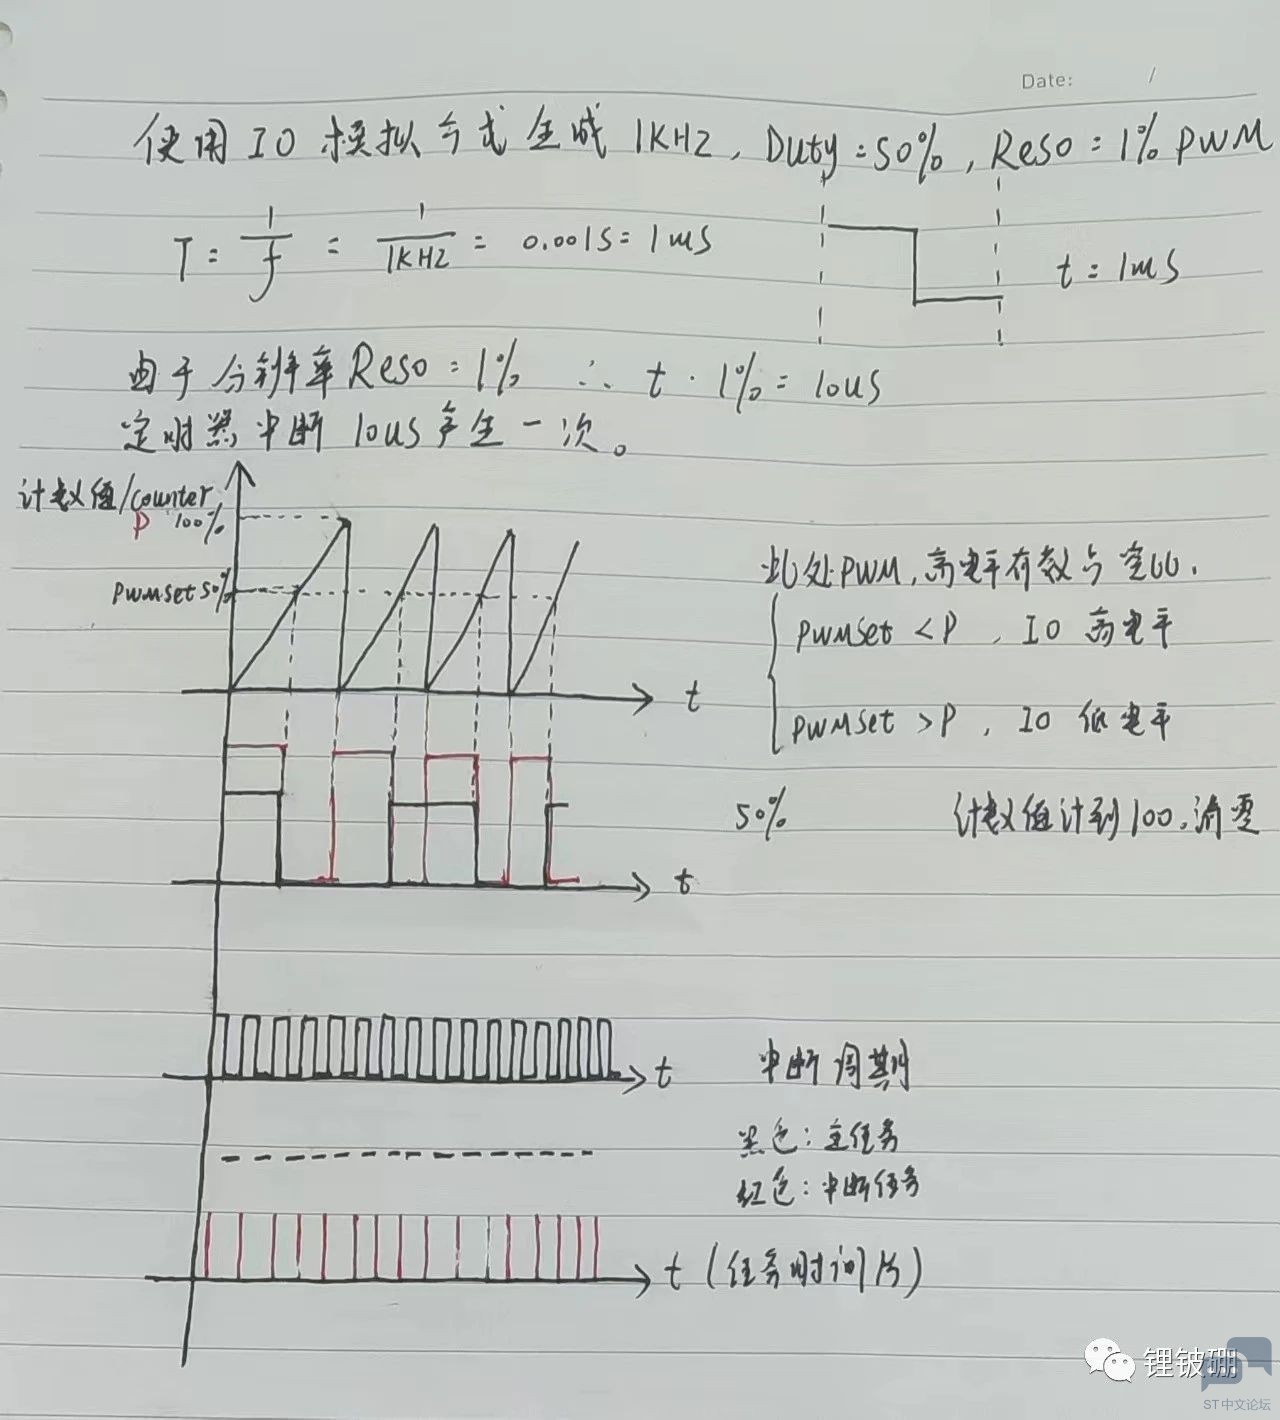 Date: /
使用IO模拟方式生成1KHZ，Duty=50%，Reso=1% PWM
T = 1/f = 1/1KHZ = 0.001S = 1mS
t = 1mS
由于分辨率Reso=1% ∴ t·1% = 10uS
定时器中断10uS产生一次。
计数值/counter
P 100%
PWMSet 50%
此处PWM，高电平有效占空比.
PWMSet < P，IO 高电平
t
PWMSet > P，IO 低电平
50% 计数值计到100，清零
t
t 中断周期
黑色：主任务
红色：中断任务
t（任务时间片）
锂铍硼
ST中文论坛